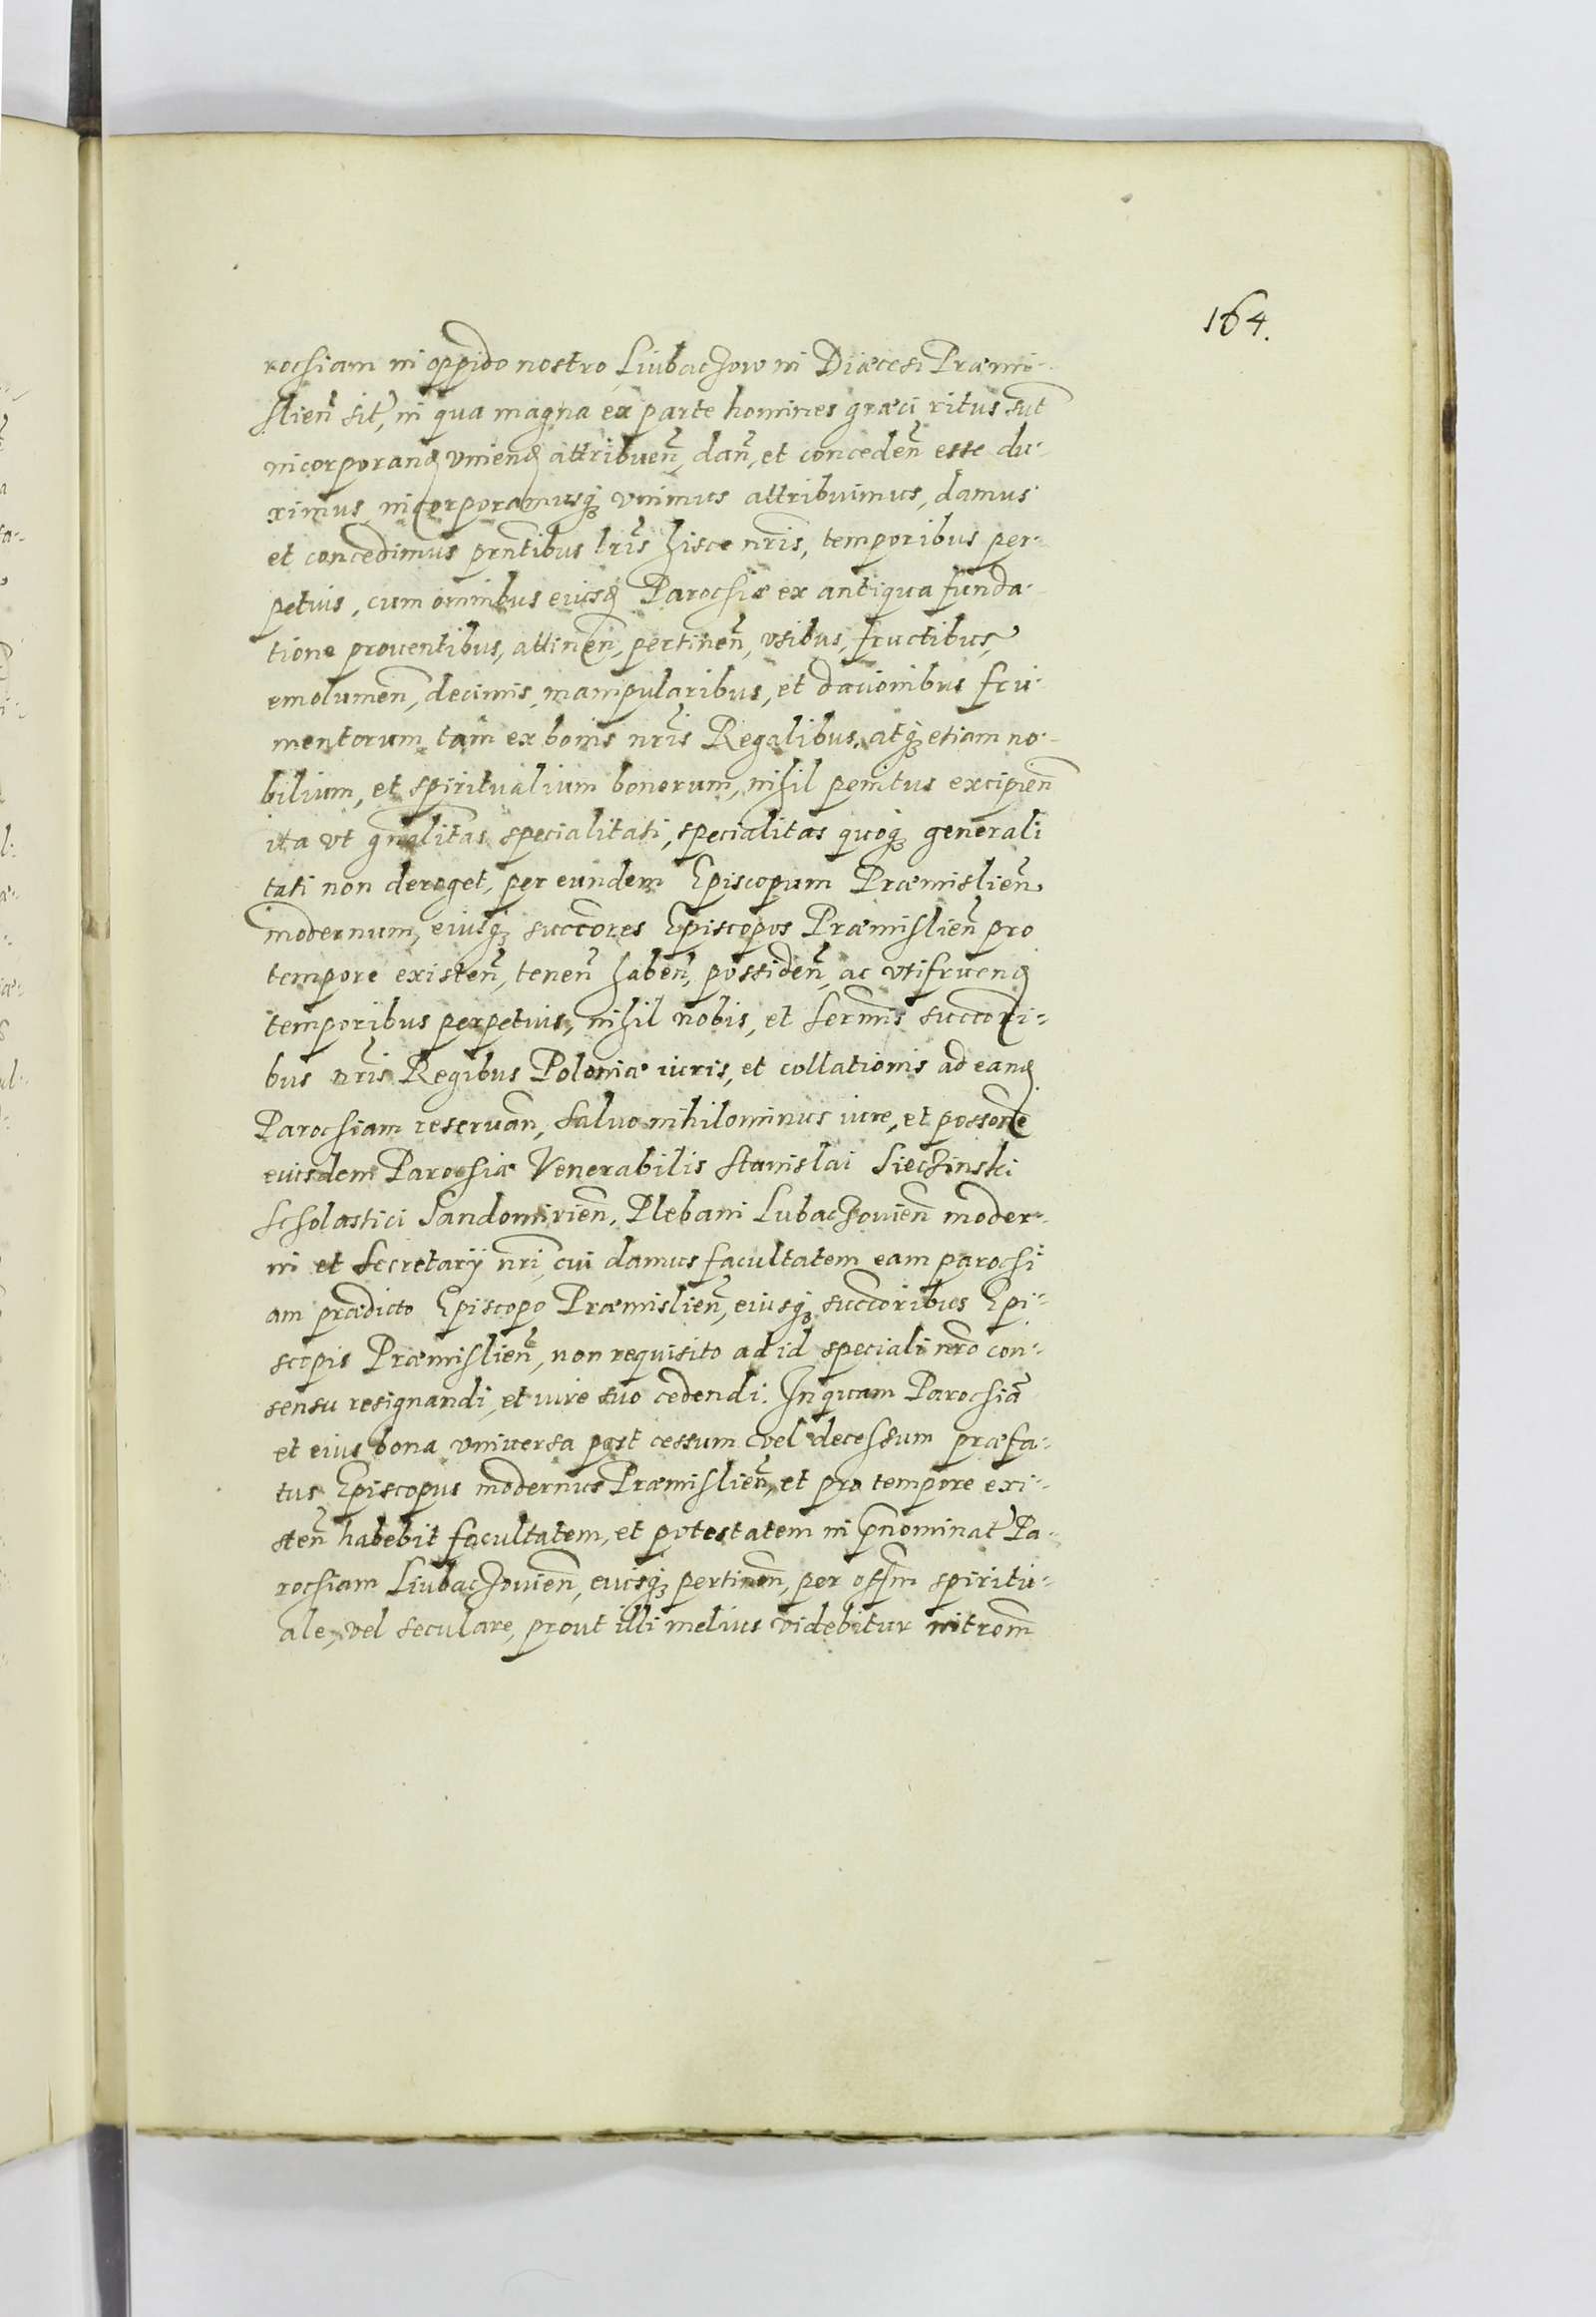 164.
rochiam in oppido nostro Liubachow in Diæcesi Præmi-
slien̄ sit̃, in qua magna ex parte homines græci ritus sūt
incorporanđ vnienđ attribuen̄, dan̄, et conceden̄ esse du-
ximus, incorporamusq; vnimus attribuimus, damus
et concedimus prn̄tibus lr̄is hisce nr̄is, temporibus per-
petuis, cum omnibus eiusđ Parochiæ ex antiqua funda-
tione prouentibus, attinen̄, pertinen̄, vsibus, fructibus,
emolumen̄, decimis, manipularibus, et dacionibus fru-
mentorum tam ex bonis nr̄is Regalibus, atq; etiam no-
bilium, et spiritualium bonorum, nihil penitus excipien̄
ita vt gn̄alitas specialitati, specialitas quoq; generali
tati non deroget, per eundem Episcopum Præmislien̄
modernum, eiusq; succōres Episcopos Præmislien̄ pro
tempore existen̄, tenen̄ haben̄, possiden̄, ac vtifruenđ
temporibus perpetuis, nihil nobis, et serm̄is succōri-
bus nr̄is Regibus Poloniæ iuris, et collationis ad eanđ
Parochiam reseruan̄, saluo nihilominus iure, et possōne
eiusdem Parochiæ Venerabilis Stanislai Siechinski
Scholastici Sandomirien̄, Plebani Lubachouien̄ moder-
ni et Secretarij nr̄i, cui damus facultatem eam parochi
am prædicto Episcopo Præmislien̄, eiusq; succōribus Epi-
scopis Præmislien̄, non requisito ad id speciali nr̄o con-
sensu resignandi, et iure suo cedendi. In quam Parochiā
et eius bona vniuersa post cessum vel decessum præfa-
tus Episcopus modernus Præmislien̄, et pro tempore exi-
sten̄ habebit facultatem, et potestatem in p̄nominat̃ Pa-
rochiam Liubachouien̄, eiusq; pertinen̄, per offm̄ spiritu-
ale, vel seculare, prout illi melius videbitur introm̄